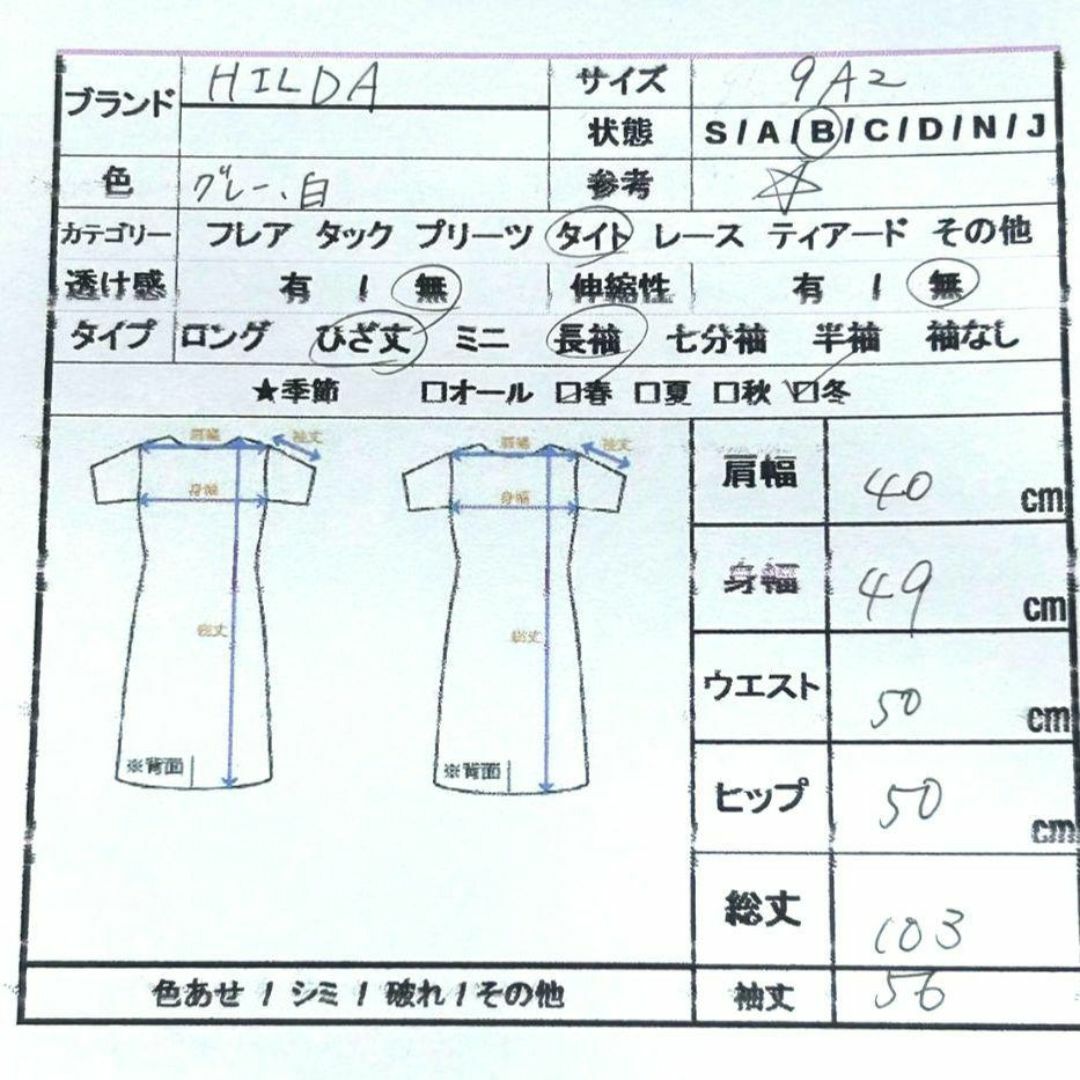 ブランド HILDA サイズ 9A2
状態 S / A / B / C / D / N / J
色 グレー、白 参考 ☆
カテゴリー フレア タック プリーツ タイト レース ティアード その他
透け感 有 / 無 伸縮性 有 / 無
タイプ ロング ひざ丈 ミニ 長袖 七分袖 半袖 袖なし
★季節 □オール ☑春 □夏 □秋 ☑冬
肩幅 袖丈 肩幅 袖丈
身幅 身幅
総丈 総丈
※背面 ※背面
肩幅 40 cm
身幅 49 cm
ウエスト 50 cm
ヒップ 50 cm
総丈 103
色あせ / シミ / 破れ / その他 袖丈 56